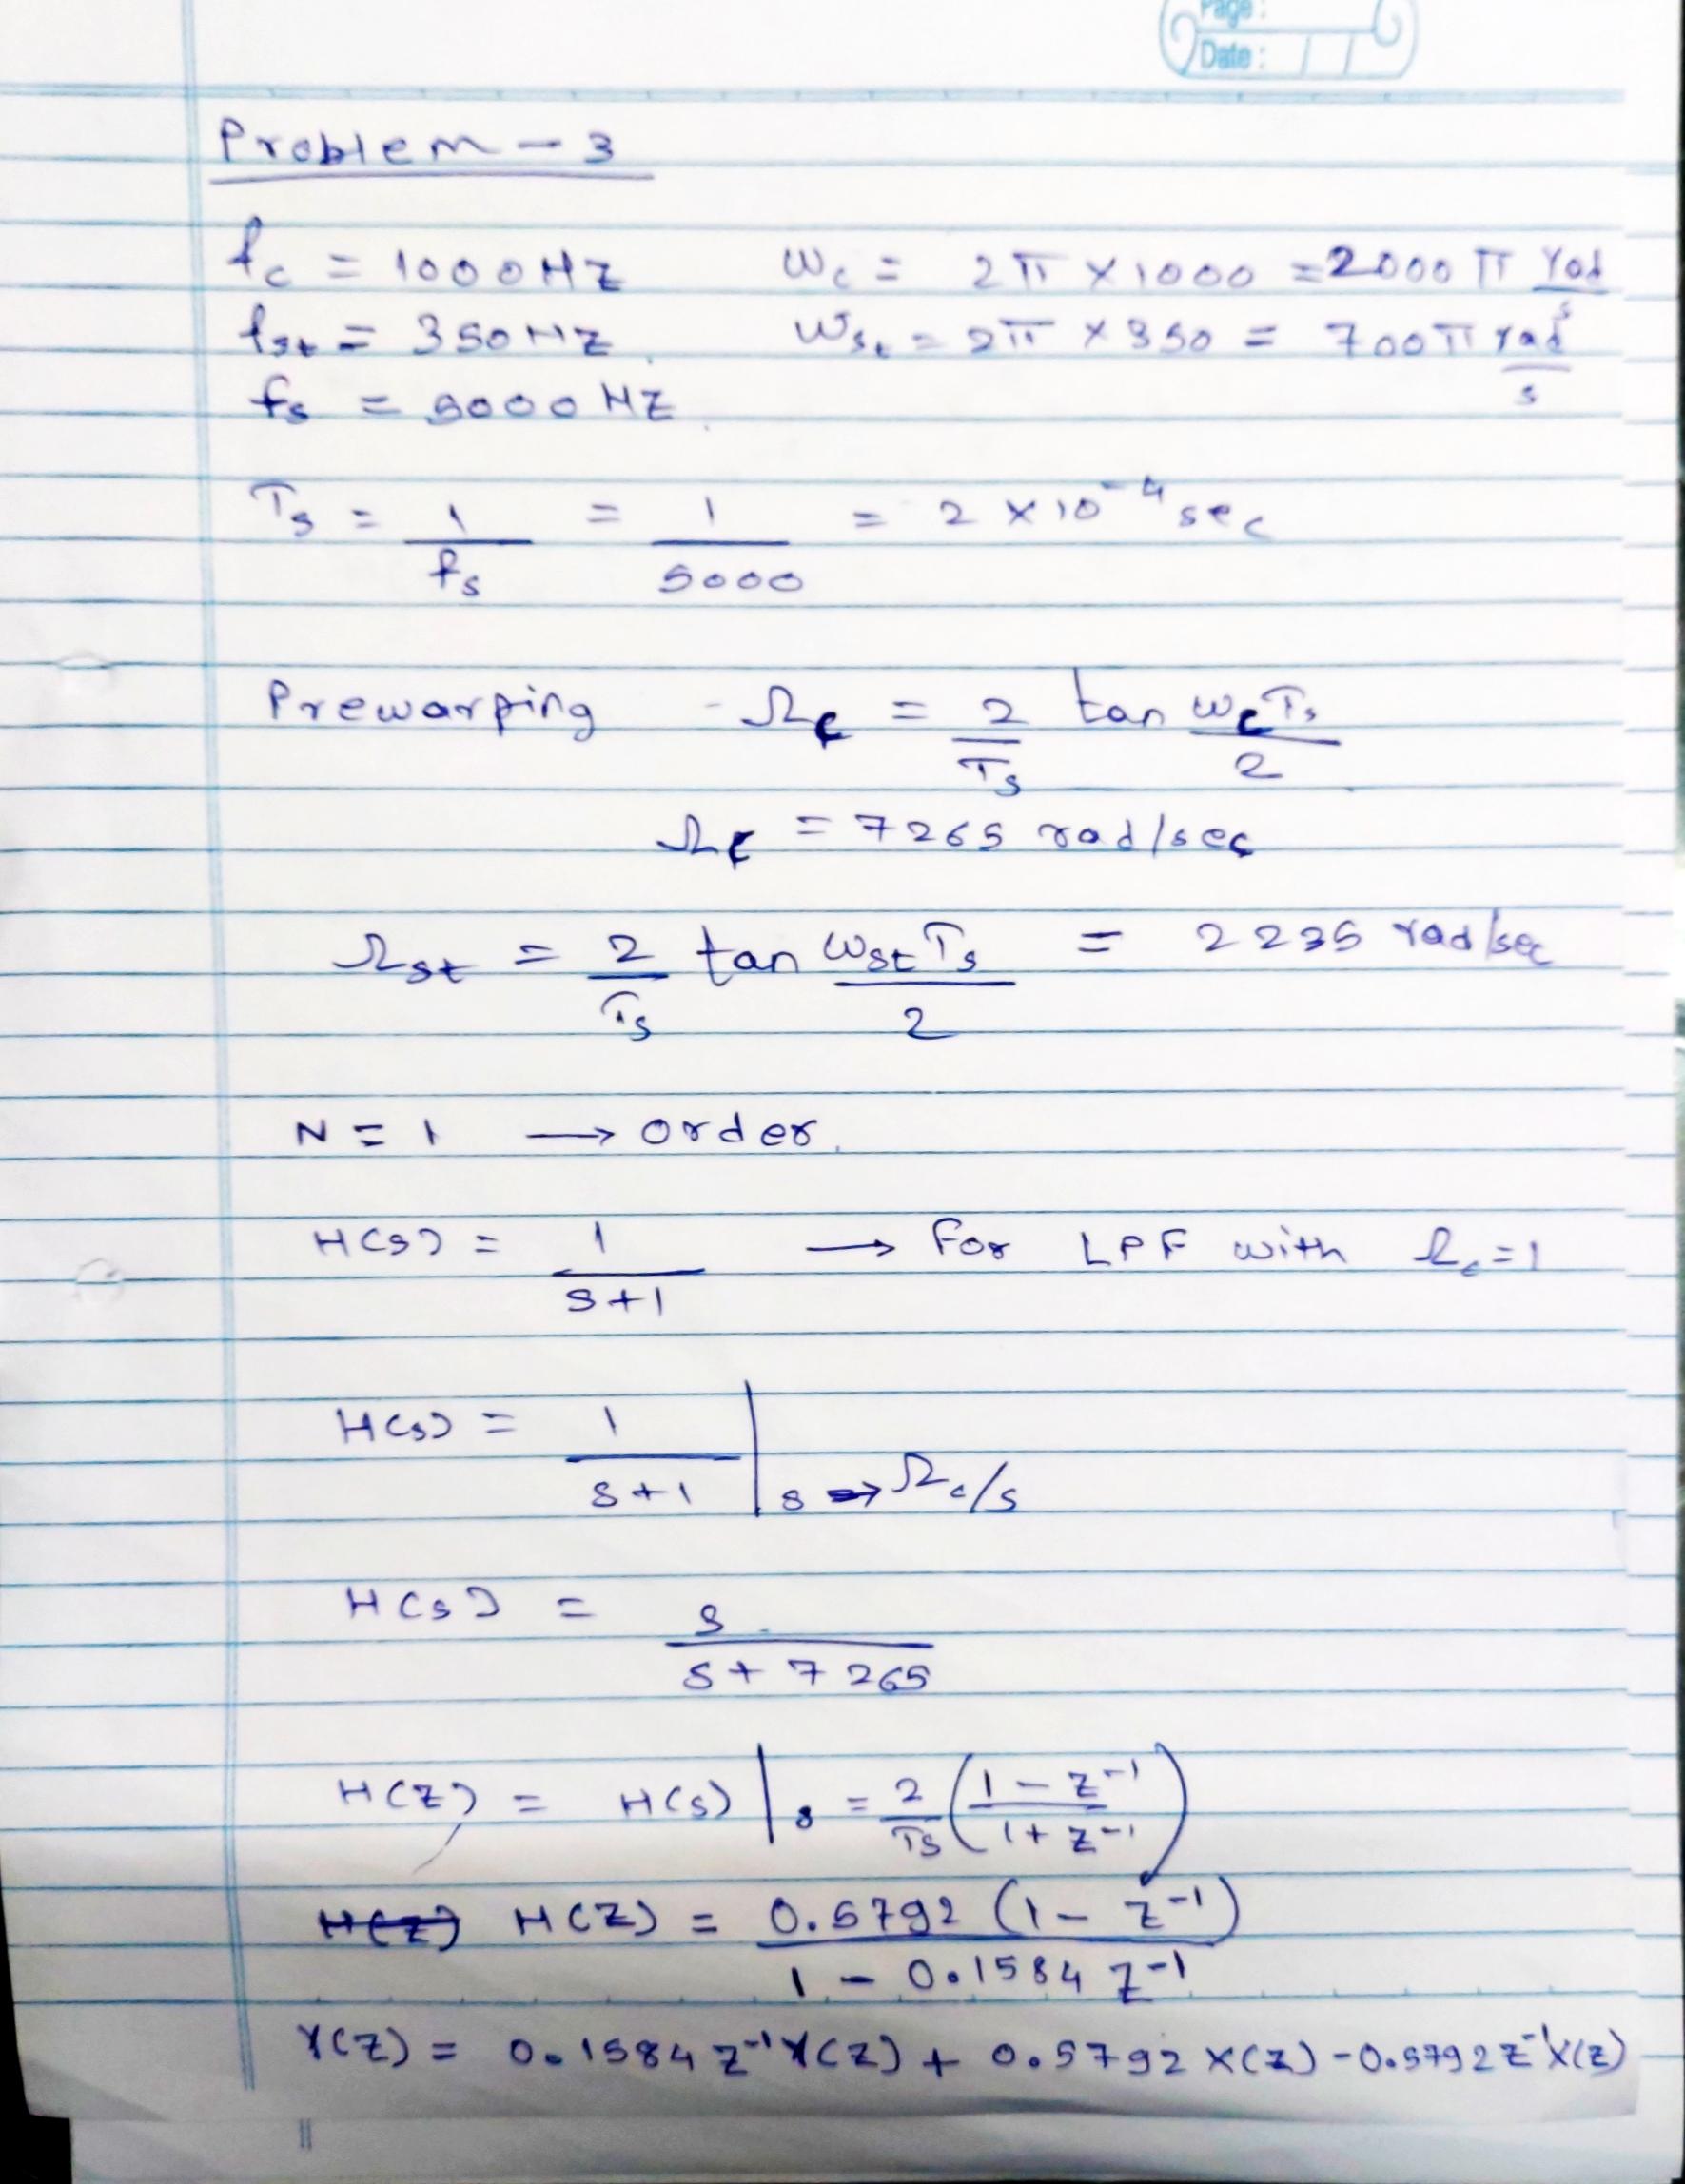 Page:
Date: / /
Problem - 3
fc = 1000HZ ωc = 2π × 1000 = 2000π rad/s
fst = 350HZ. ωst = 2π × 350 = 700π rad/s
fs = 5000 HZ.
Ts = 1/fs = 1/5000 = 2 × 10^-4 sec
Prewarping - Ωc = 2/Ts tan ωcTs/2
Ωc = 7265 rad/sec
Ωst = 2/Ts tan ωstTs/2 = 2235 rad/sec
N = 1 → order.
H(s) = 1/(s+1) → for LPF with Ωc=1
H(s) = 1/(s+1) | s → Ωc/s
H(s) = s/(s + 7265)
H(Z) = H(s) | s = 2/Ts ((1 - Z^-1)/(1 + Z^-1))
H(Z) H(Z) = 0.5792 (1 - Z^-1)/(1 - 0.1584 Z^-1)
Y(Z) = 0.1584 Z^-1 Y(Z) + 0.5792 X(Z) - 0.5792 Z^-1 X(Z)